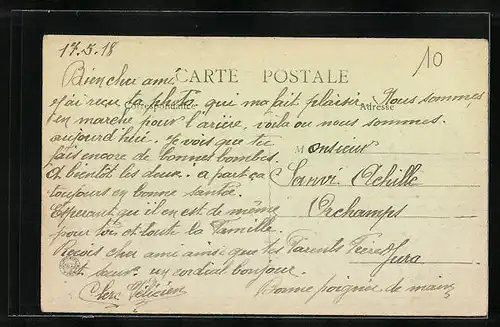 17.5.18
10
CARTE POSTALE
Correspondance
Adresse
Bien cher ami
j'ai reçu ta photo qui ma fait plaisir. Nous sommes
en marche pour l'arière, voila ou nous sommes
aujourd'hui. Je vois que tu
fais encore de bonnes bombes.
et bientôt les deux. a part ça
toujours en bonne santé.
Esperant qu'il en est de même
pour toi et toute la famille.
Reçois cher ami ainsi que tes Parents Frère
et sœur. un cordial bonjour.
Bonne poignée de main
Monsieur
Achille
Orchamps
Jura